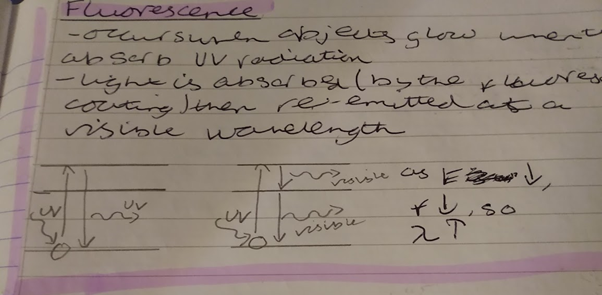 Fluorescence
- occurs when objects glow when
absorb UV radiation
- light is absorbed (by the fluores
coating) then re-emitted at a
visible wavelength
visible as E ↓,
UV UV UV visible f ↓, so
λ ↑